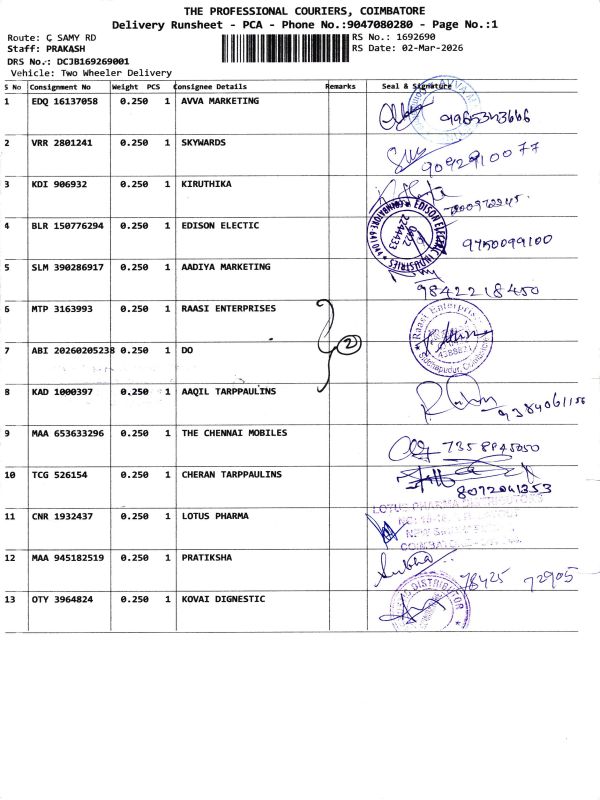 THE PROFESSIONAL COURIERS, COIMBATORE
Delivery Runsheet - PCA - Phone No.:9047080280 - Page No.:1
Route: C SAMY RD
RS No.: 1692690
Staff: PRAKASH
RS Date: 02-Mar-2026
DRS No.: DCJB169269001
Vehicle: Two Wheeler Delivery
S No Consignment No Weight PCS Consignee Details Remarks Seal & Signature
1 EDQ 16137058 0.250 1 AVVA MARKETING
2 VRR 2801241 0.250 1 SKYWARDS 9092910077
3 KDI 906932 0.250 1 KIRUTHIKA
4 BLR 150776294 0.250 1 EDISON ELECTIC EDISON ELECTRIC INDUSTRIES 9750099100
5 SLM 390286917 0.250 1 AADIYA MARKETING 9842218450
6 MTP 3163993 0.250 1 RAASI ENTERPRISES Raasi Enterprises
7 ABI 20260205238 0.250 1 DO 2
8 KAD 1000397 0.250 1 AAQIL TARPPAULINS 9384061156
9 MAA 653633296 0.250 1 THE CHENNAI MOBILES 7358845050
10 TCG 526154 0.250 1 CHERAN TARPPAULINS 8072041353
11 CNR 1932437 0.250 1 LOTUS PHARMA
12 MAA 945182519 0.250 1 PRATIKSHA Subha 78425 72905
13 OTY 3964824 0.250 1 KOVAI DIGNESTIC DISTRIBUTOR